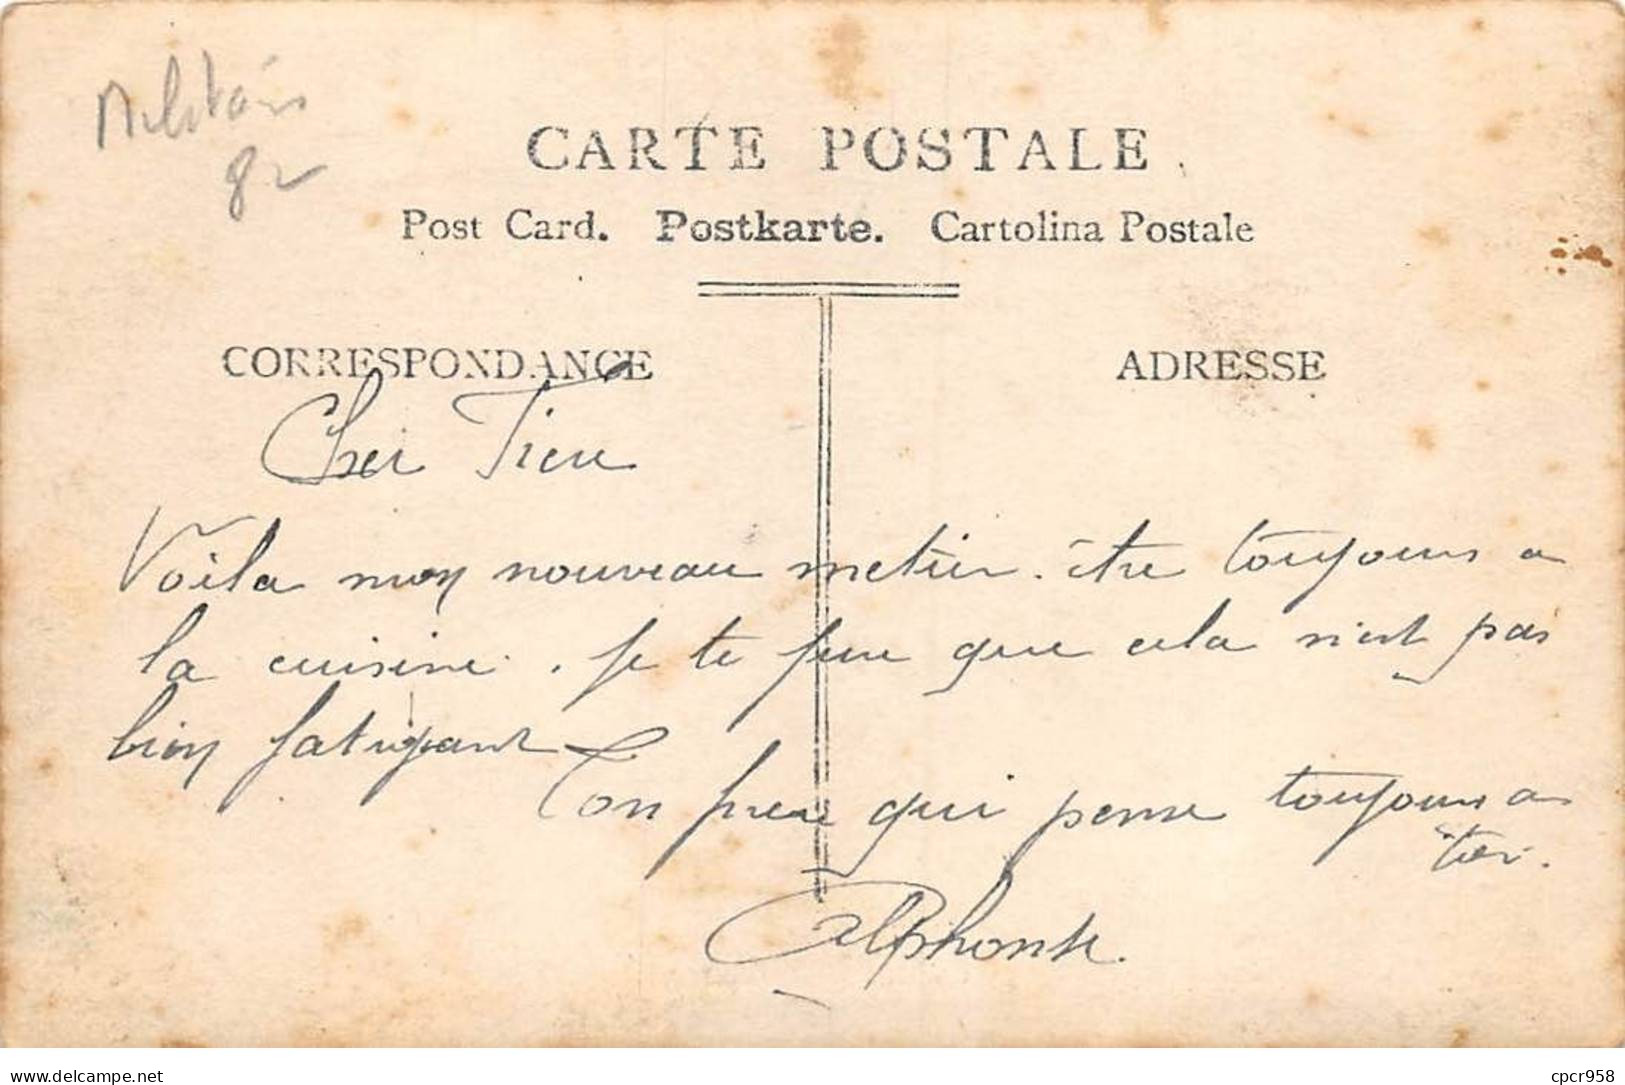 Militair
82
CARTE POSTALE
Post Card. Postkarte. Cartolina Postale
CORRESPONDANCE
ADRESSE
Cher
Voila mon nouveau metier. être toujours a
la cuisine. Je te jure que cela n'est pas
bien fatigant
Ton frere qui pense toujours a
toi.
Alphonse.
delcampe.net
cpcr958